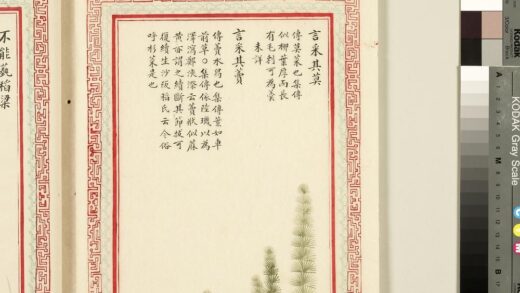 言采其莫
傳莫菜也集傳
似柳葉厚而長
有毛刺可為羹
未詳
言采其藚
傳藚水舄也集傳葉如車
前草○集傳依陸璣以為
澤瀉鄭漁云藚狀似蔴
黃亦謂之續斷其節拔可
復續生沙坂稻氏云今俗
呼杉菜是也
不能蓺稻粱
Kodak
KODAK Gray Scale
A
M
B
C
Y
M